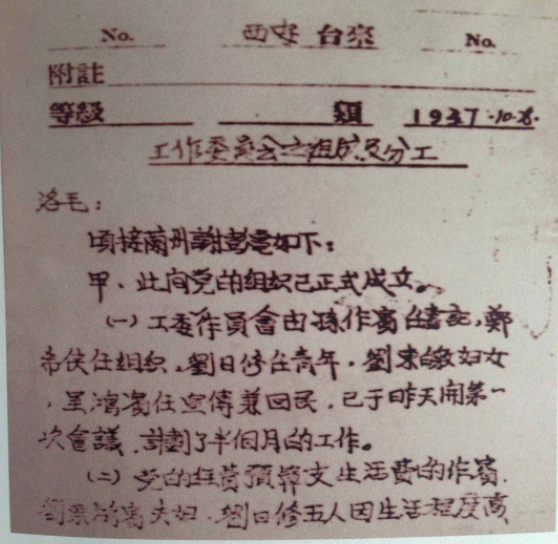 No. 西安 台來 No.
附註
等級 類 1937·10·8·
工作委員会之组成及分工
洛毛：
頃接蘭州謝彭電如下：
甲、此间党的组织已正式成立。
(一)工委作員會由孫作賓任書記，鄭
任组织，劉日修任青年，劉 妇女
，吴鴻賓任宣傳兼回民，已于昨天開第一
次會議，計劃了半個月的工作。
(二)党的经费預算支生活费的作賓，
夫妇，劉日修五人因生活程度高